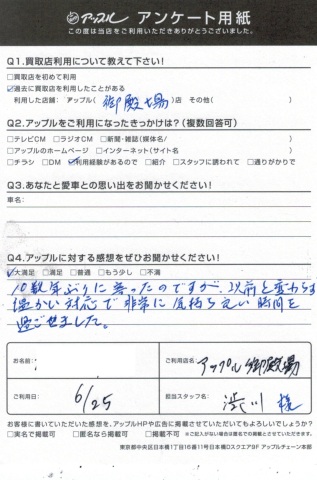 アップル アンケート用紙
この度は当店をご利用いただきありがとうございました。
Q1.買取店利用について教えて下さい!
□買取店を初めて利用
☑過去に買取店を利用したことがある
利用した店舗: アップル( 御殿場 )店 その他( )
Q2.アップルをご利用になったきっかけは?(複数回答可)
□テレビCM □ラジオCM □新聞・雑誌(媒体名/ )
□アップルのホームページ □インターネット(サイト名 )
□チラシ □DM ☑利用経験があるので □紹介 □スタッフに誘われて □通りがかりで
Q3.あなたと愛車との思い出をお聞かせください!
車名:
Q4.アップルに対する感想をぜひお聞かせください!
☑大満足 □満足 □普通 □もう少し □不満
10数年ぶりに寄ったのですが、以前と変わらず
温かい対応で非常に気持ちえい時間を
過ごせました。
お名前:
ご利用店名: アップル御殿場
ご利用日: 6/25
担当スタッフ名: 渋川 様
お客様に書いていただいた感想を、アップルHPや広告に掲載させていただいてもよろしいでしょうか?
□実名で掲載可 □匿名なら掲載可 □掲載不可 ※ご記入がない場合は匿名での掲載とさせていただきます。
東京都中央区日本橋1丁目16番11号日本橋Dスクエア9F アップルチェーン本部